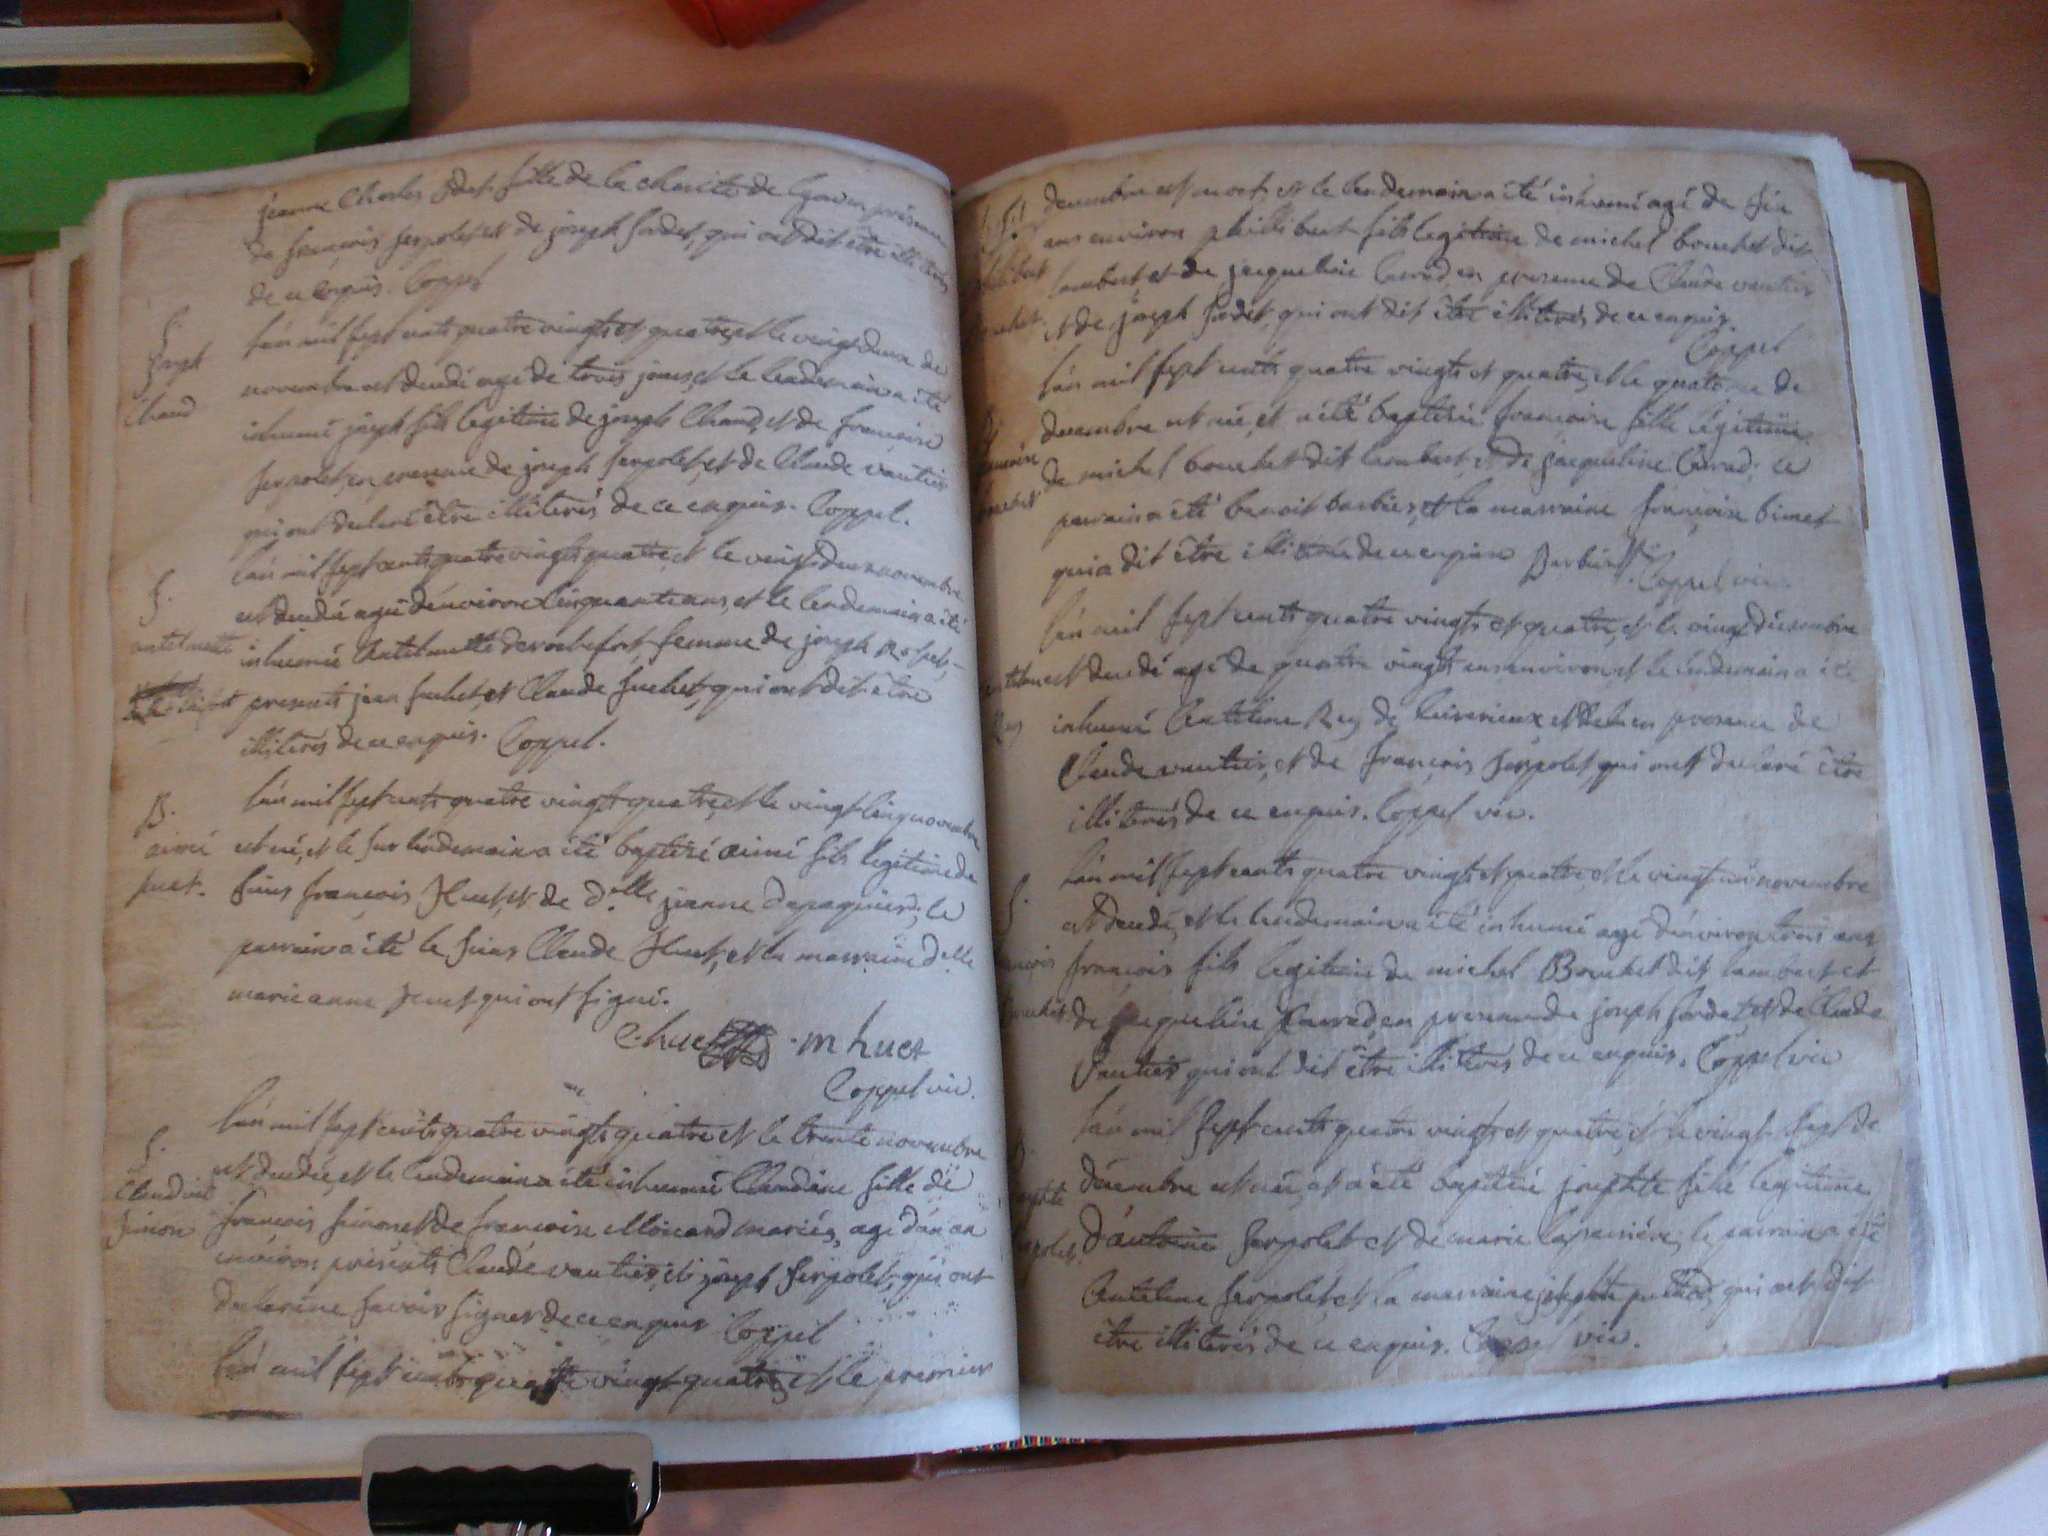 jeanne Charles fille de la charité de Lyon en présence
de françois serpolet et de joseph sordet, qui ont dit être illiterés
de ce enquis. Coppel
S.
joseph
Chaud
L'an mil sept cents quatre vingts et quatre, et le vingt deux de
novembre est decédé agé de trois jours, et le lendemain a été
inhumé joseph fils legitime de joseph Chaud, et de françoise
serpolet, en presence de joseph serpolet, et de Claude vautier
qui ont declaré être illiterés de ce enquis. Coppel.
S.
antelmette
L'an mil sept cents quatre vingts quatre, et le vingt deux novembre
est decedée agée d'environ cinquante ans, et le lendemain a été
inhumée Antelmette derochefort femme de joseph
presents jean suchet, et Claude suchet, qui ont dit être
illiterés de ce enquis. Coppel.
B.
aimé
huet.
L'an mil sept cents quatre vingt quatre, et le vingt cinq novembre
est né, et le sur lendemain a été baptisé aimé fils legitime de
sieur françois Huet, et de d.elle jeanne ; le
parrain a été le sieur Claude Huet, et la marraine d.elle
marie anne huet qui ont signé.
C. huet m huet
Coppel vic.
S.
Claudine
simon
L'an mil sept cents quatre vingts quatre et le trente novembre
est decedée, et le lendemain a été inhumée Claudine fille de
françois simon et de françoise Monard mariés, agé d'un an
environ présents Claude vautier, et joseph serpolet, qui ont
declaré ne savoir signer de ce enquis Coppel
L'an mil sept cents quatre vingt quatre, et le premier
decembre est mort, et le lendemain a été inhumé agé de six
ans environ philibert fils legitime de michel bouchet dit
lambert, et de jacqueline Carrad, en presence de Claude vautier
et de joseph sordet, qui ont dit être illiterés de ce enquis.
Coppel
L'an mil sept cents quatre vingts et quatre, et le quatorze de
decembre est née, et a été baptisée françoise fille légitime
de michel bouchet dit lambert, et de jacqueline Carrad; le
parrain a été benoit barbier, et la marraine françoise bimet
qui a dit être illiterée de ce enquise Barbier Coppel vic.
L'an mil sept cents quatre vingts et quatre, et le vingt décembre
est decedé agé de quatre vingts ans environ, et le lendemain a été
inhumé Anthelme Rey de en presence de
Claude vautier, et de françois serpolet, qui ont declaré être
illiterés de ce enquis. Coppel vic.
S.
françois
bouchet
L'an mil sept cents quatre vingts et quatre et le vingt un novembre
est decedé, et le lendemain a été inhumé agé d'environ trois ans
françois fils legitime de michel Bouchet dit lambert et
de jacqueline Carrad, en presence de joseph sordet, et de Claude
Vautier qui ont dit être illiterés de ce enquis. Coppel vic
L'an mil sept cents quatre vingts et quatre, et le vingt sept de
décembre est née, et a été baptisée josephte fille legitime
d'antoine serpolet et de marie ; le parrain a été
Antelme serpolet, et la marraine josephte qui ont dit
être illiterés de ce enquis. Coppel vic.